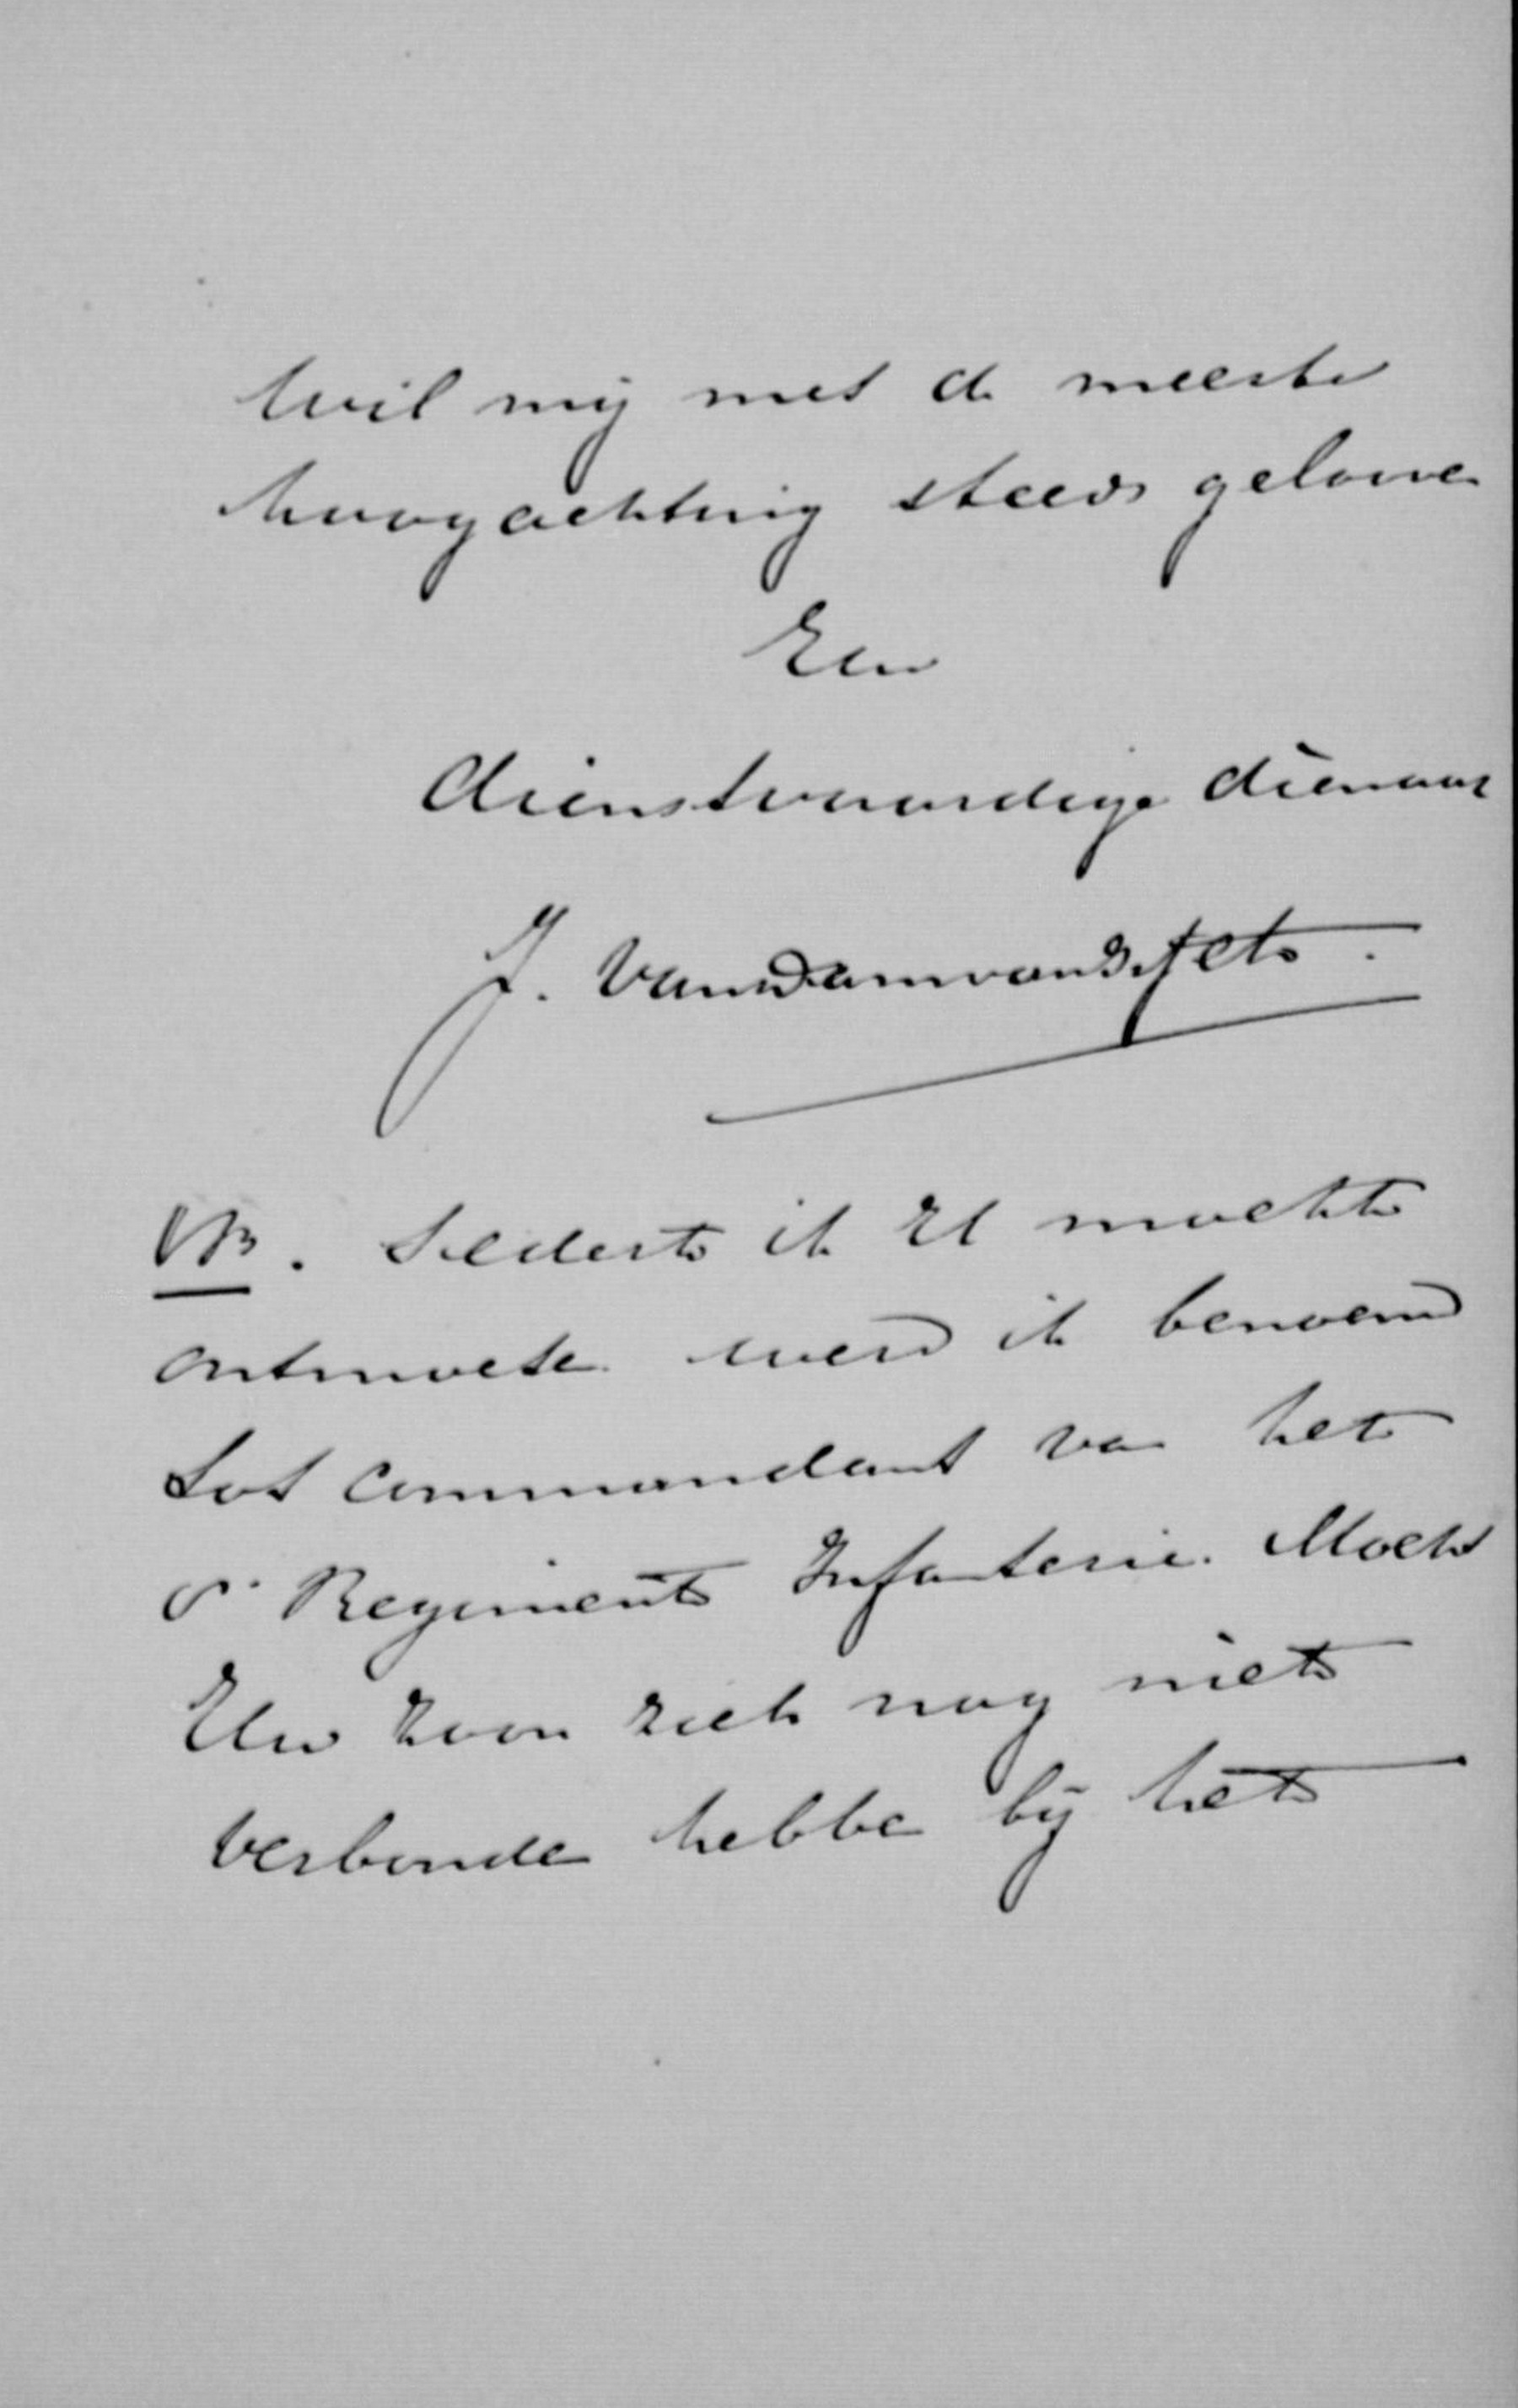 Wil mij met de meeste
hoogachting steeds geloven
Uw
dienstvaardige dienaar
J. Van Dam van Isselt.
NB. Sedert ik U mocht
ontmoeten werd ik benoemd
tot commandant van het
Regiment Infanterie. Mocht
Uw zoon zich nog niet
verbonden hebben bij het